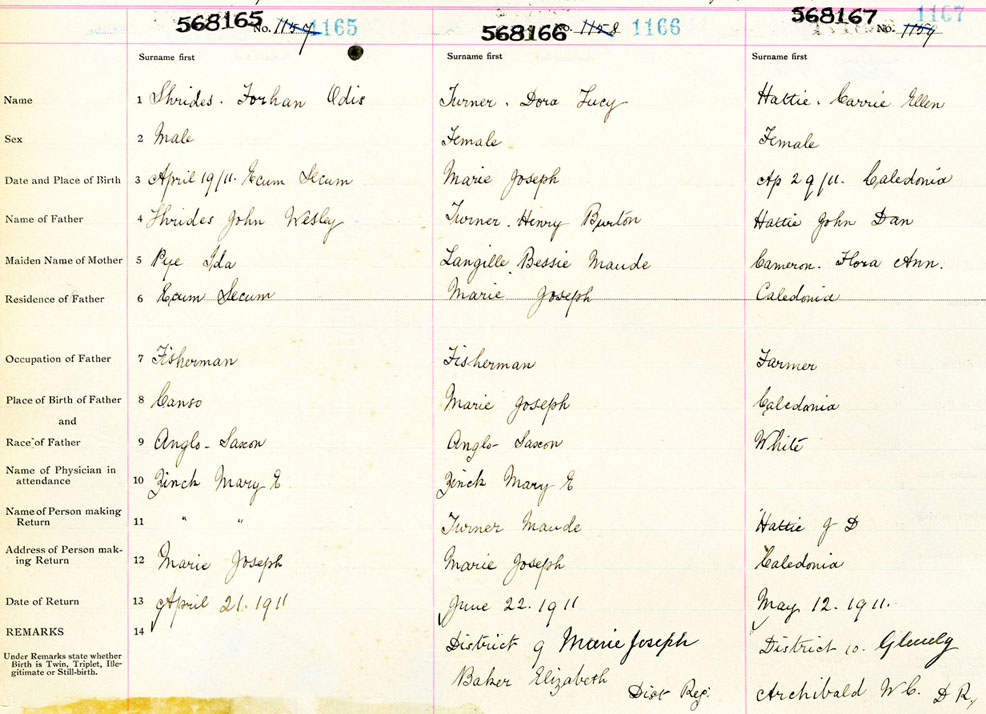 568165 No. 1157 1165
568166 No. 1158 1166
568167 No. 1159 1167
Surname first Surname first Surname first
Name 1 Shrides. Forhan Odis Turner. Dora Lucy Hattie. Carrie Ellen
Sex 2 Male Female Female
Date and Place of Birth 3 April 19/11. Ecum Secum Marie Joseph Ap 29/11. Caledonia
Name of Father 4 Shrides John Wesley Turner. Henry Burton Hattie John Dan
Maiden Name of Mother 5 Pye Ida Langille Bessie Maude Cameron. Flora Ann.
Residence of Father 6 Ecum Secum Marie Joseph Caledonia
Occupation of Father 7 Fisherman Fisherman Farmer
Place of Birth of Father 8 Canso Marie Joseph Caledonia
and
Race of Father 9 Anglo-Saxon Anglo-Saxon White
Name of Physician in
attendance 10 Zinck Mary E. Zinck Mary E
Name of Person making
Return 11 " " Turner Maude Hattie J D
Address of Person mak-
ing Return 12 Marie Joseph Marie Joseph Caledonia
Date of Return 13 April 21. 1911 June 22. 1911 May 12. 1911.
REMARKS 14 District 9 Marie Joseph District 10. Glenelg
Under Remarks state whether
Birth is Twin, Triplet, Ille-
gitimate or Still-birth.
Baker Elizabeth Dist Reg. Archibald W. C. D R,